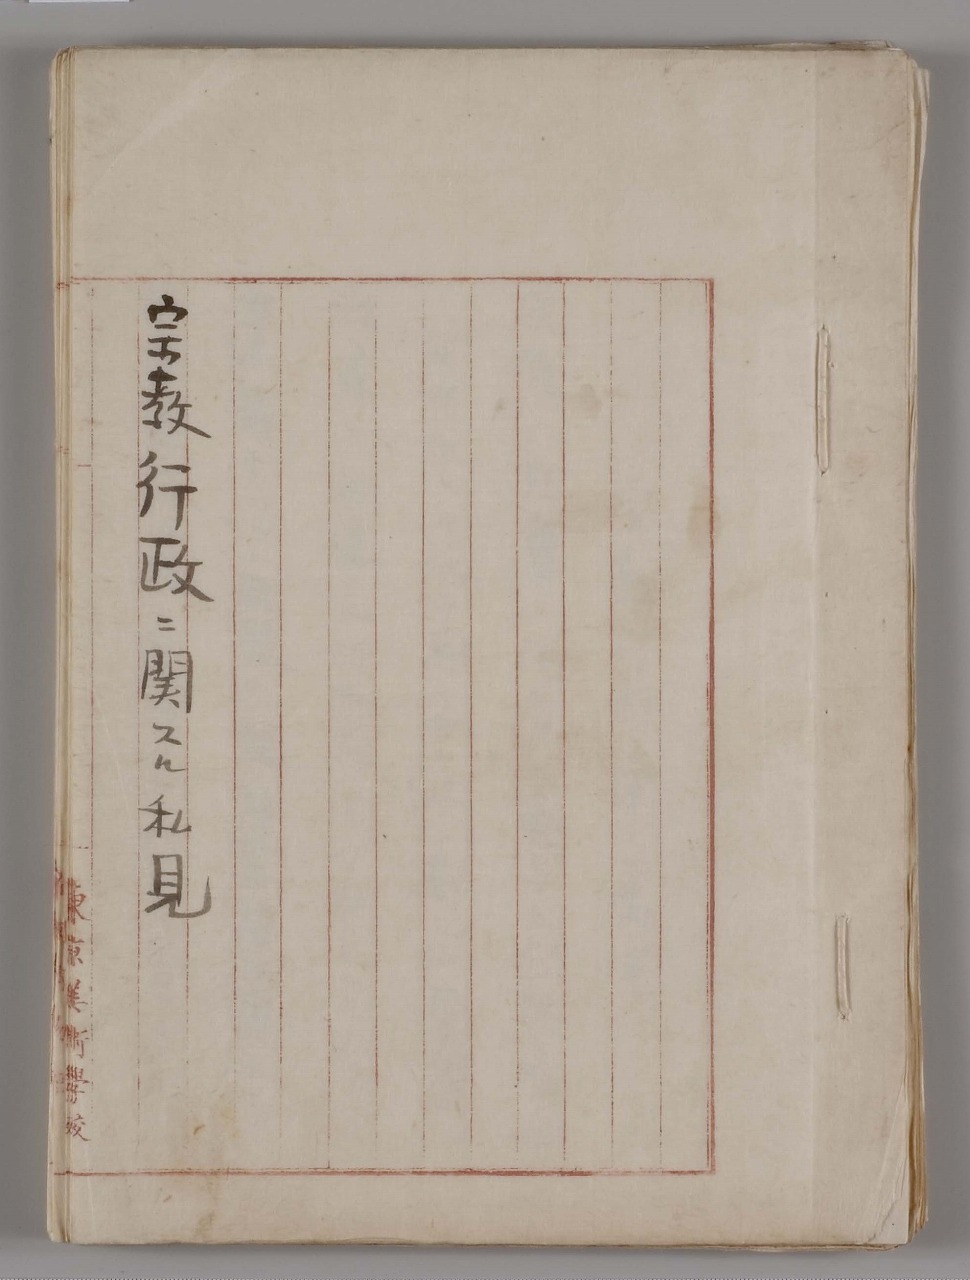 宗教行政ニ関スル私見
東京美術學校